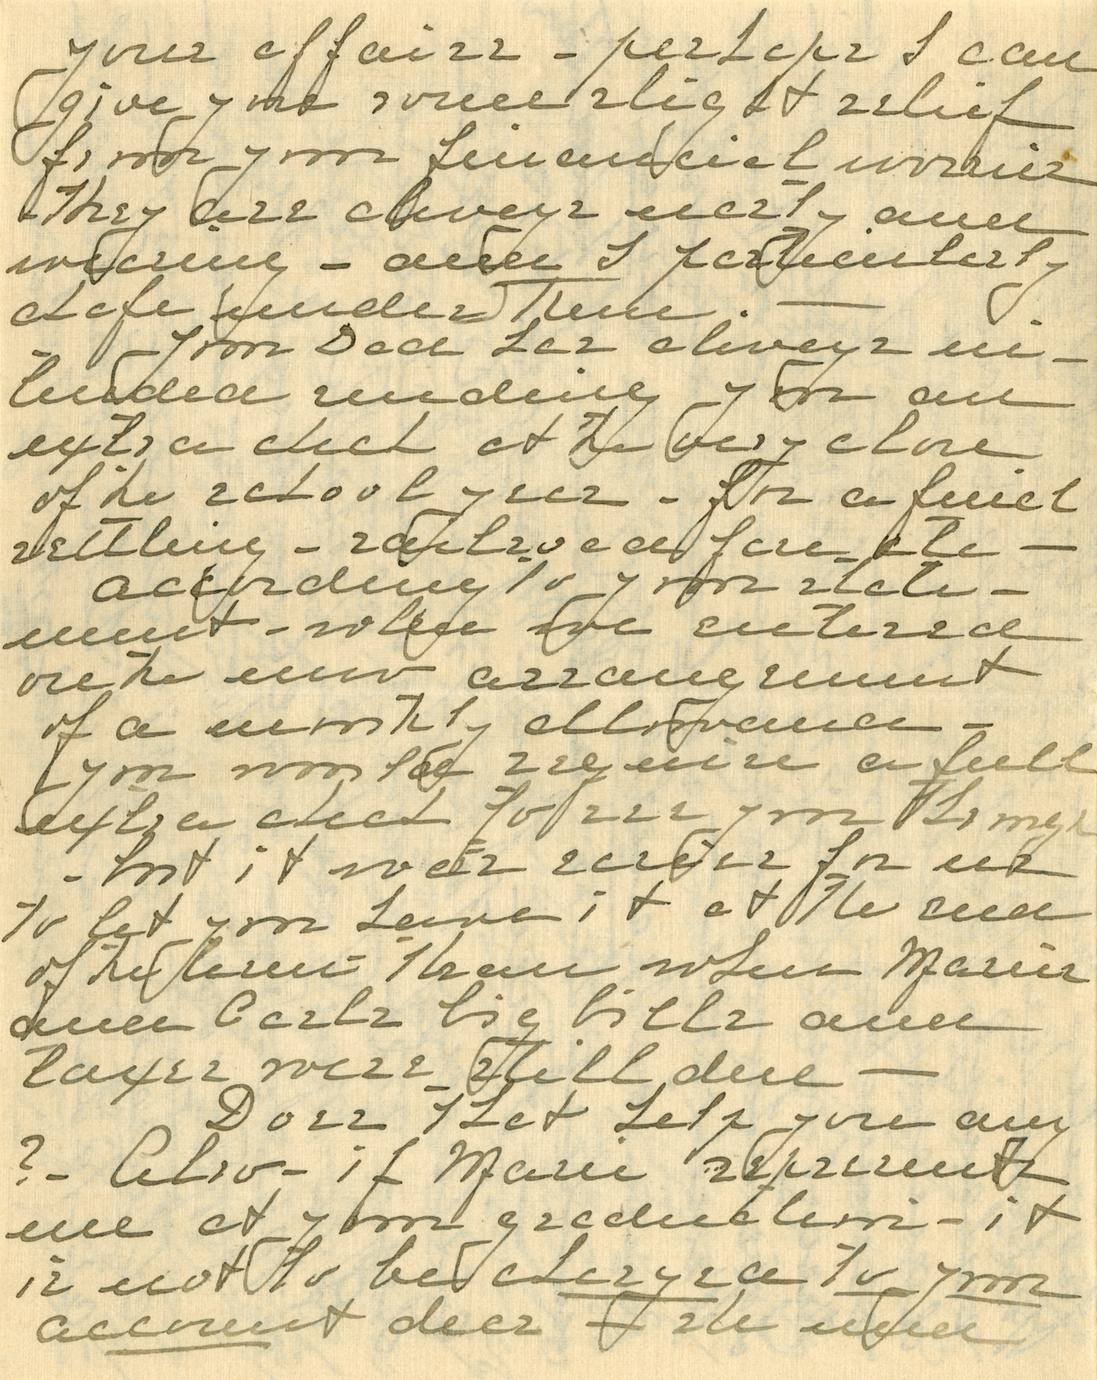 your affairs - perhaps I can
give you some slight relief
from your financial worries
they are always nasty and
wearing - and I particularly
chafe under them. —
Your Dad has always in-
tended sending you an
extra check at the very close
of the school year - for a final
settling - railroad fare etc —
according to your state-
ment - when we entered
on the new arrangement
of a monthly allowance -
you would require a full
extra check to see you through
- but it was easier for us
to let you have it at the end
of the term than when Marie
and Carls big bills and
taxes were still due —
Does that help you any
? - Also - if Marie represents
me at your graduation - it
is not to be charged to your
account dear - she